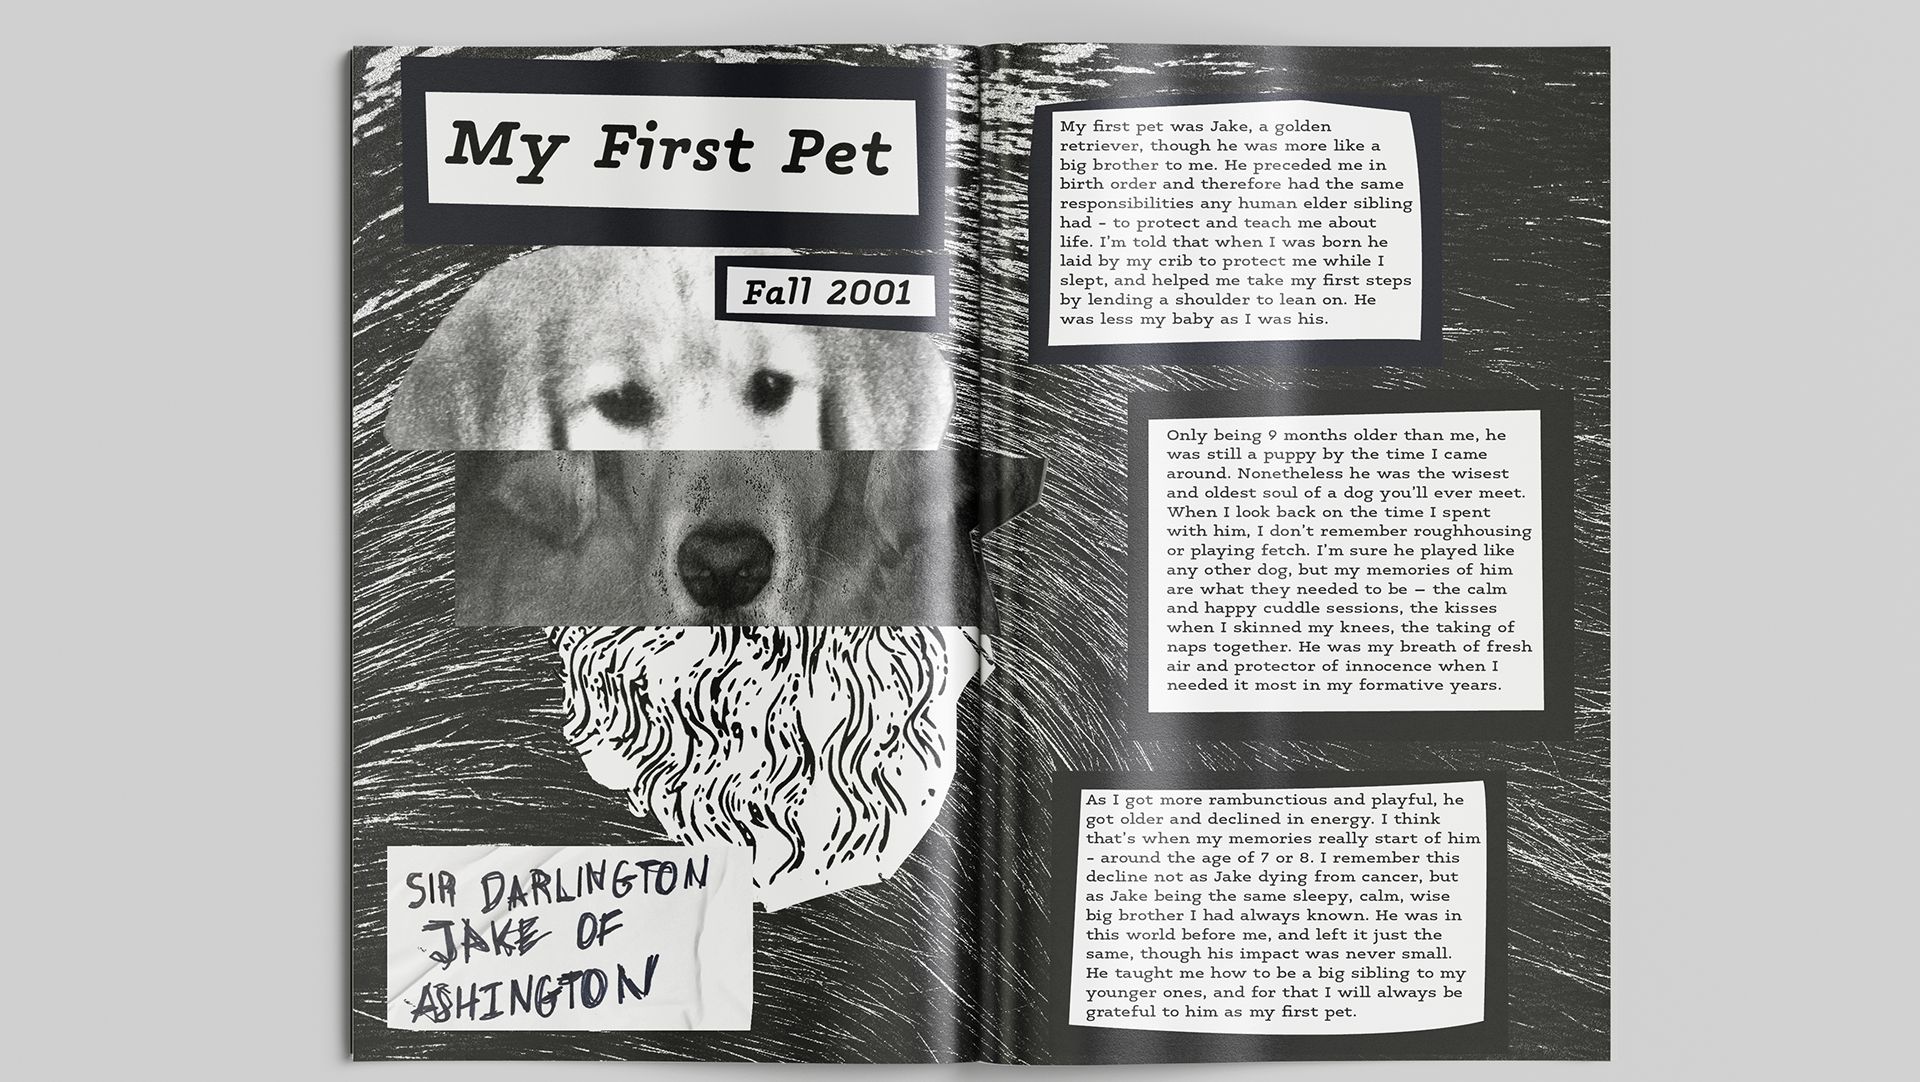 My First Pet
Fall 2001
SIR DARLINGTON
JAKE OF
ASHINGTON
My first pet was Jake, a golden
retriever, though he was more like a
big brother to me. He preceded me in
birth order and therefore had the same
responsibilities any human elder sibling
had – to protect and teach me about
life. I'm told that when I was born he
laid by my crib to protect me while I
slept, and helped me take my first steps
by lending a shoulder to lean on. He
was less my baby as I was his.
Only being 9 months older than me, he
was still a puppy by the time I came
around. Nonetheless he was the wisest
and oldest soul of a dog you'll ever meet.
When I look back on the time I spent
with him, I don't remember roughhousing
or playing fetch. I'm sure he played like
any other dog, but my memories of him
are what they needed to be — the calm
and happy cuddle sessions, the kisses
when I skinned my knees, the taking of
naps together. He was my breath of fresh
air and protector of innocence when I
needed it most in my formative years.
As I got more rambunctious and playful, he
got older and declined in energy. I think
that's when my memories really start of him
– around the age of 7 or 8. I remember this
decline not as Jake dying from cancer, but
as Jake being the same sleepy, calm, wise
big brother I had always known. He was in
this world before me, and left it just the
same, though his impact was never small.
He taught me how to be a big sibling to my
younger ones, and for that I will always be
grateful to him as my first pet.